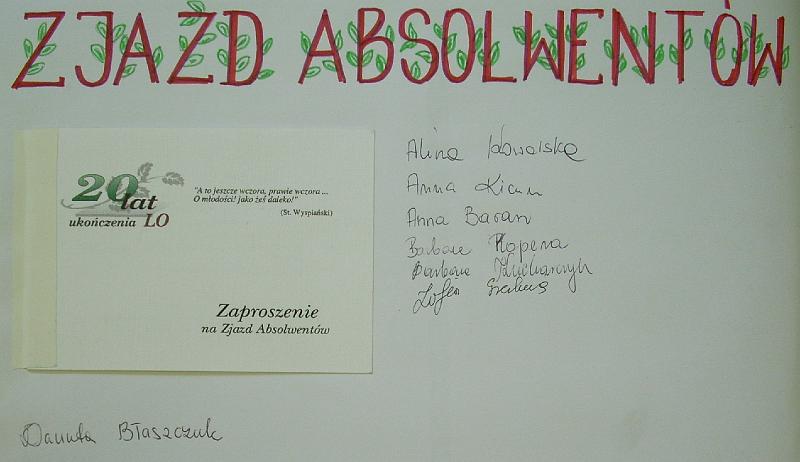 ZJAZD ABSOLWENTÓW
20 lat
ukończenia LO
"A to jeszcze wczora, prawie wczora ...
O młodości! jako żeś daleko!"
(St. Wyspiański)
Zaproszenie
na Zjazd Absolwentów
Alina Kowalska
Anna
Anna Baran
Barbara Kopera
Barbara Kucharczyk
Zofia
Danuta Błaszczuk